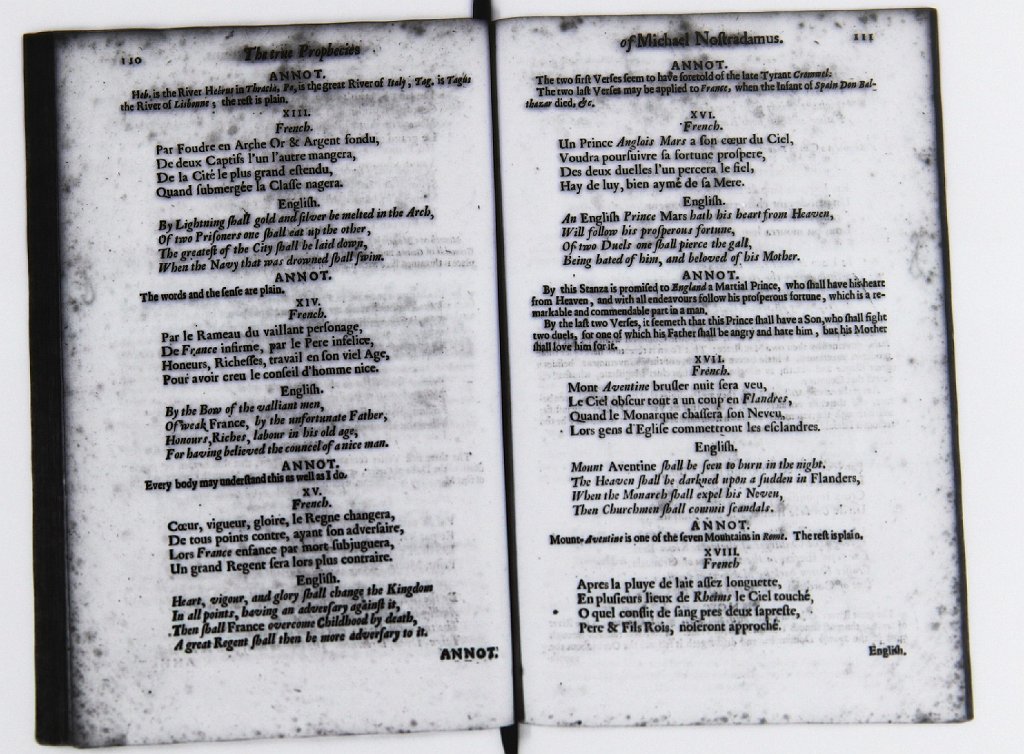 110
The true Prophecies
ANNOT.
Heb. is the River Hebrus in Thracia, Po, is the great River of Italy; Tag. is Tagus
the River of Lisbonne; the rest is plain.
XIII.
French.
Par Foudre en Arche Or & Argent fondu,
De deux Captifs l'un l'autre mangera,
De la Cité le plus grand eſtendu,
Quand ſubmergée la Claſſe nagera.
Engliſh.
By Lightning ſhall gold and ſilver be melted in the Arch,
Of two Priſoners one ſhall eat up the other,
The greateſt of the City ſhall be laid down,
When the Navy that was drowned ſhall ſwim.
ANNOT.
The words and the ſenſe are plain.
XIV.
French.
Par le Rameau du vaillant perſonage,
De France infirme, par le Pere infelice,
Honeurs, Richeſſes, travail en ſon viel Age,
Pour avoir creu le conſeil d'homme nice.
Engliſh.
By the Bow of the valliant men,
Of weak France, by the unfortunate Father,
Honours, Riches, labour in his old age,
For having believed the councel of a nice man.
ANNOT.
Every body may underſtand this as well as I do.
XV.
French.
Cœur, vigueur, gloire, le Regne changera,
De tous points contre, ayant ſon adverſaire,
Lors France enfance par mort ſubjuguera,
Un grand Regent ſera lors plus contraire.
Engliſh.
Heart, vigour, and glory ſhall change the Kingdom
In all points, having an adverſary againſt it,
Then ſhall France overcome Childhood by death,
A great Regent ſhall then be more adverſary to it.
ANNOT.
of Michael Noſtradamus.
111
ANNOT.
The two firſt Verſes ſeem to have foretold of the late Tyrant Cromwel:
The two laſt Verſes may be applied to France, when the Infant of Spain Don Bal-
thazar died, &c.
XVI.
French.
Un Prince Anglais Mars a ſon cœur du Ciel,
Voudra pourſuivre ſa fortune proſpere,
Des deux duelles l'un percera le fiel,
Hay de luy, bien aymé de ſa Mere.
Engliſh.
An Engliſh Prince Mars hath his heart from Heaven,
Will follow his proſperous fortune,
Of two Duels one ſhall pierce the gall,
Being hated of him, and beloved of his Mother.
ANNOT.
By this Stanza is promiſed to England a Martial Prince, who ſhall have his heart
from Heaven, and with all endeavours follow his proſperous fortune, which is a re-
markable and commendable part in a man.
By the laſt two Verſes, it ſeemeth that this Prince ſhall have a Son, who ſhall fight
two duels, for one of which his Father ſhall be angry and hate him, but his Mother
ſhall love him for it.
XVII.
French.
Mont Aventine bruſler nuit ſera veu,
Le Ciel obſcur tout a un coup en Flandres,
Quand le Monarque chaſſera ſon Neveu,
Lors gens d'Egliſe commettront les eſclandres.
Engliſh.
Mount Aventine ſhall be ſeen to burn in the night,
The Heaven ſhall be darkned upon a ſudden in Flanders,
When the Monarch ſhall expel his Neveu,
Then Churchmen ſhall commit ſcandals.
ANNOT.
Mount-Aventine is one of the ſeven Mountains in Rome. The reſt is plain.
XVIII.
French
Apres la pluye de lait aſſez longuette,
En pluſieurs lieux de Rheims le Ciel touché,
O quel conflit de ſang pres deux ſapreſte,
Pere & Fils Rois, noſeront approché.
Engliſh.